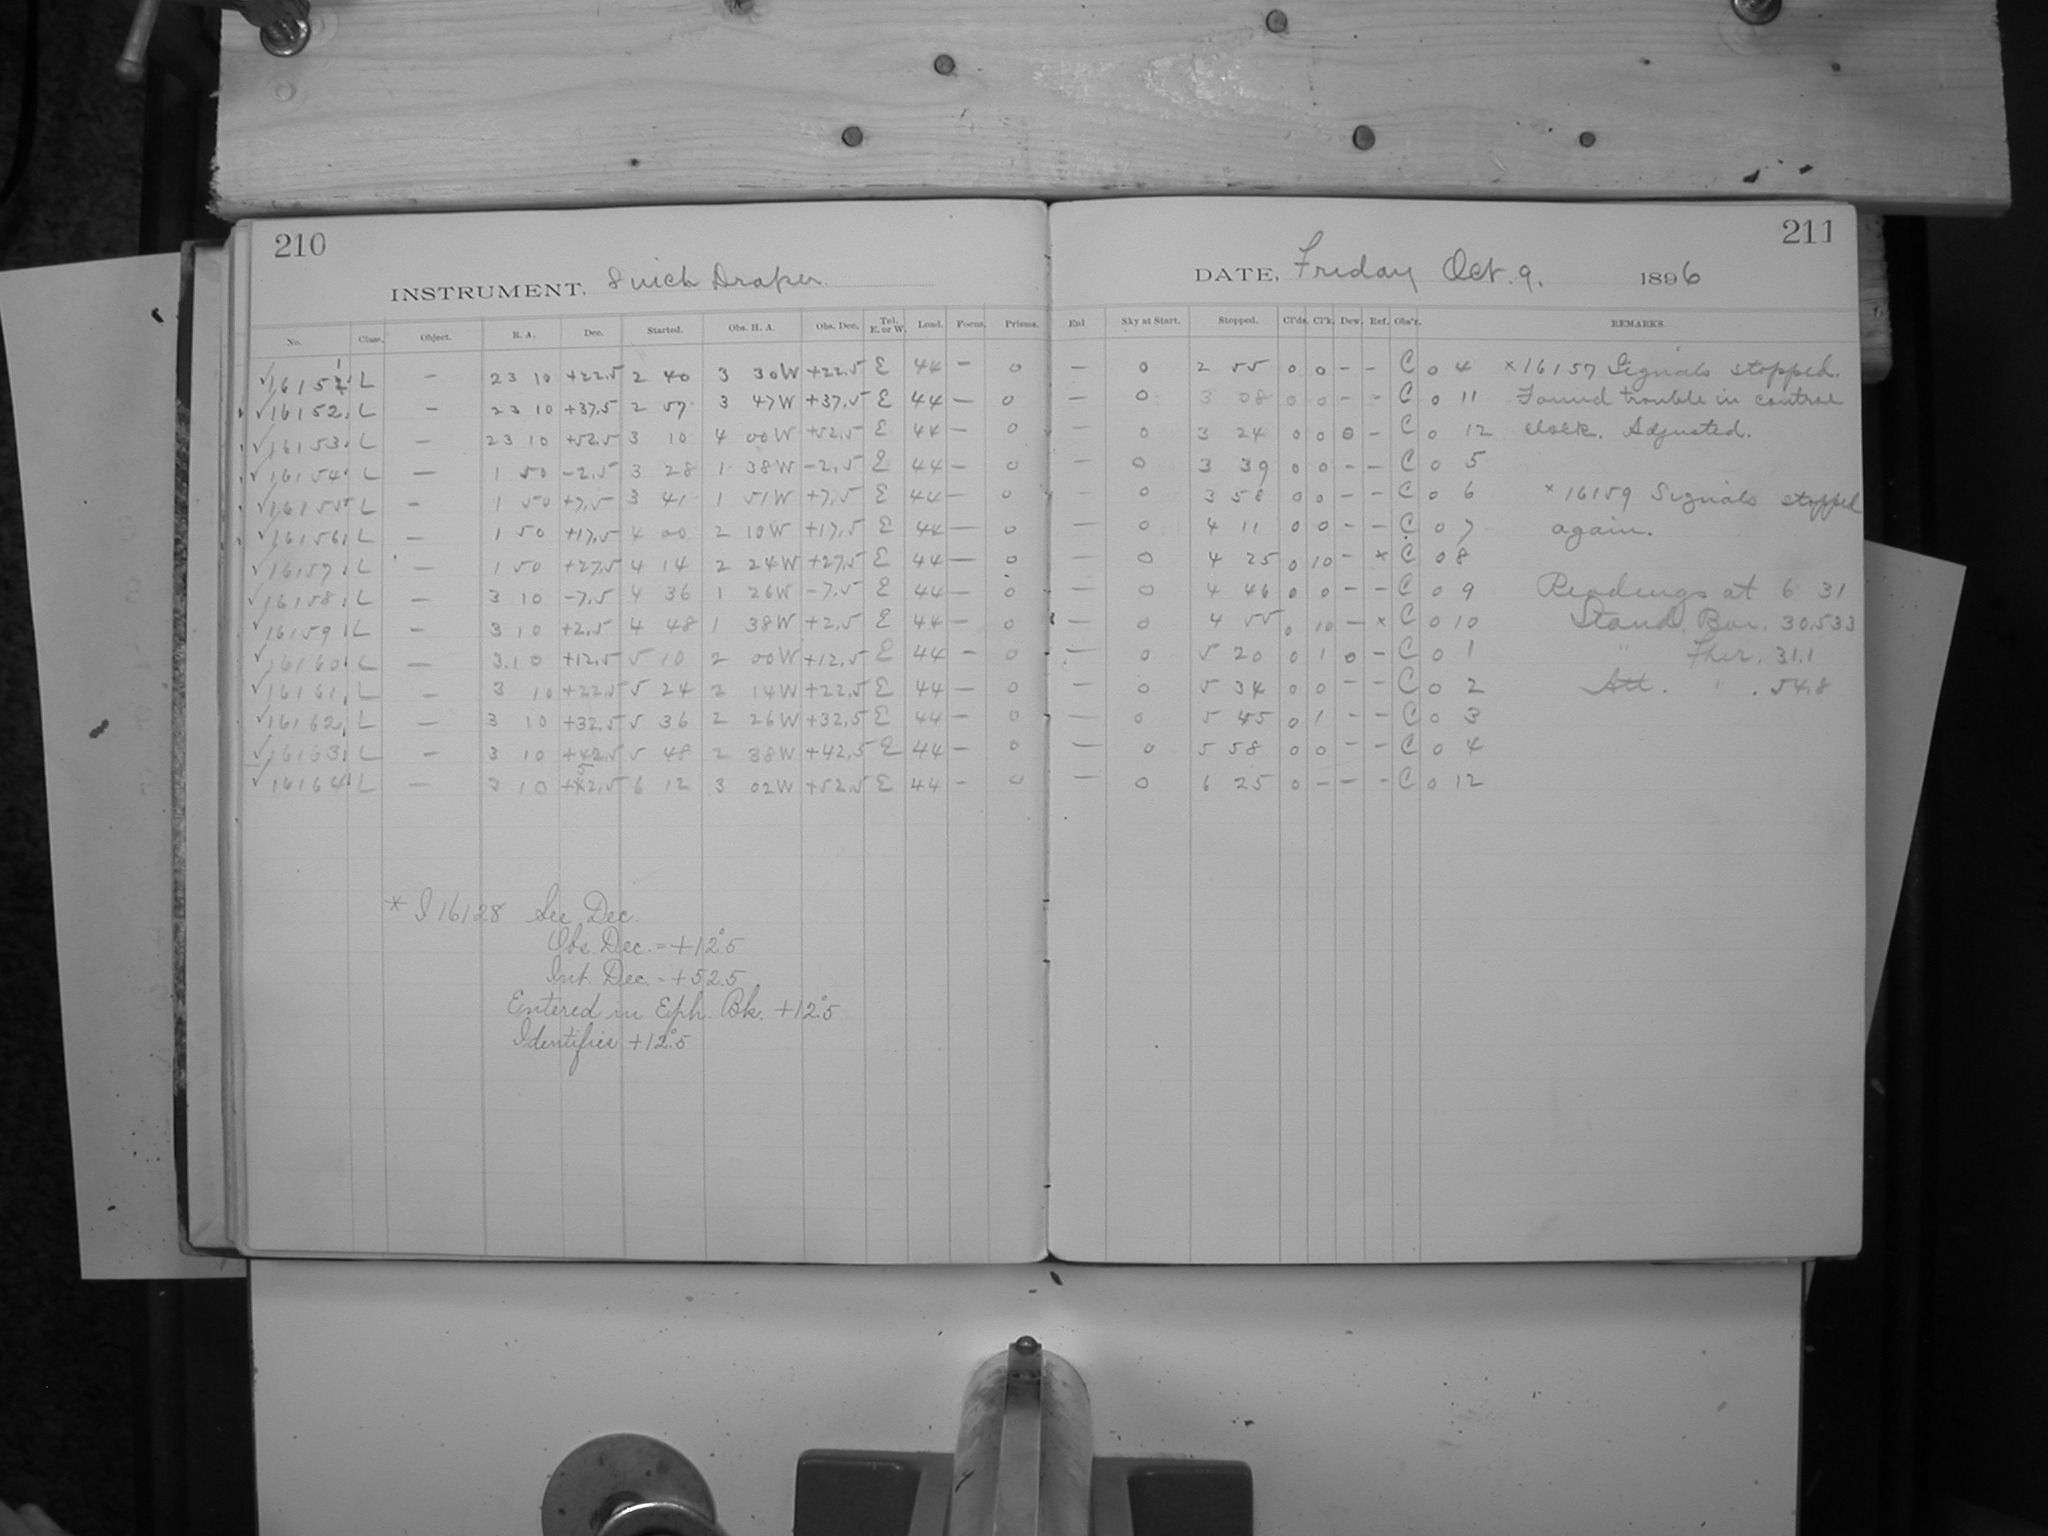 210
INSTRUMENT, 8 inch Draper
No. Class. Object. R. A. Dec. Started. Obs. H. A. Obs. Dec. Tel. E. or W. Load. Focus. Prisms.
✓16151 L — 23 10 +22.5 2 40 3 30W +22.5 E 44 — 0
✓16152 L — 23 10 +37.5 2 57 3 47W +37.5 E 44 — 0
✓16153 L — 23 10 +52.5 3 10 4 00W +52.5 E 44 — 0
✓16154 L — 1 50 -2.5 3 28 1 38W -2.5 E 44 — 0
✓16155 L — 1 50 +7.5 3 41 1 51W +7.5 E 44 — 0
✓16156 L — 1 50 +17.5 4 00 2 10W +17.5 E 44 — 0
✓16157 L — 1 50 +27.5 4 14 2 24W +27.5 E 44 — 0
✓16158 L — 3 10 -7.5 4 36 1 26W -7.5 E 44 — 0
✓16159 L — 3 10 +2.5 4 48 1 38W +2.5 E 44 — 0
✓16160 L — 3 10 +12.5 5 10 2 00W +12.5 E 44 — 0
✓16161 L — 3 10 +22.5 5 24 2 14W +22.5 E 44 — 0
✓16162 L — 3 10 +32.5 5 36 2 26W +32.5 E 44 — 0
✓16163 L — 3 10 +42.5 5 48 2 38W +42.5 E 44 — 0
✓16164 L — 3 10 +52.5 6 12 3 02W +52.5 E 44 — 0
* I 16128 See Dec.
Obs. Dec. = +12°.5
Int. Dec. = +52.5
Entered in Eph. Bk. +12°.5
Identifier +12°.5
211
DATE, Friday Oct. 9. 1896
Enl Sky at Start. Stopped. Cl'ds. Cl'k. Dew. Ref. Obs'r. REMARKS.
— 0 2 55 0 0 - - C 0 4 ×16157 Signals stopped.
— 0 3 08 0 0 - - C 0 11 Found trouble in control
— 0 3 24 0 0 0 - C 0 12 clock. Adjusted.
— 0 3 39 0 0 - - C 0 5
— 0 3 58 0 0 - - C 0 6 ×16159 Signals stopped
— 0 4 11 0 0 - - C 0 7 again.
— 0 4 25 0 10 - × C 0 8
— 0 4 46 0 0 - - C 0 9 Readings at 6 31
— 0 4 55 0 10 - × C 0 10 Stand. Bar. 30.533
— 0 5 20 0 1 0 - C 0 1 " Ther. 31.1
— 0 5 34 0 0 - - C 0 2 Att. " . 54.8
— 0 5 45 0 1 - - C 0 3
— 0 5 58 0 0 - - C 0 4
— 0 6 25 0 - - - C 0 12